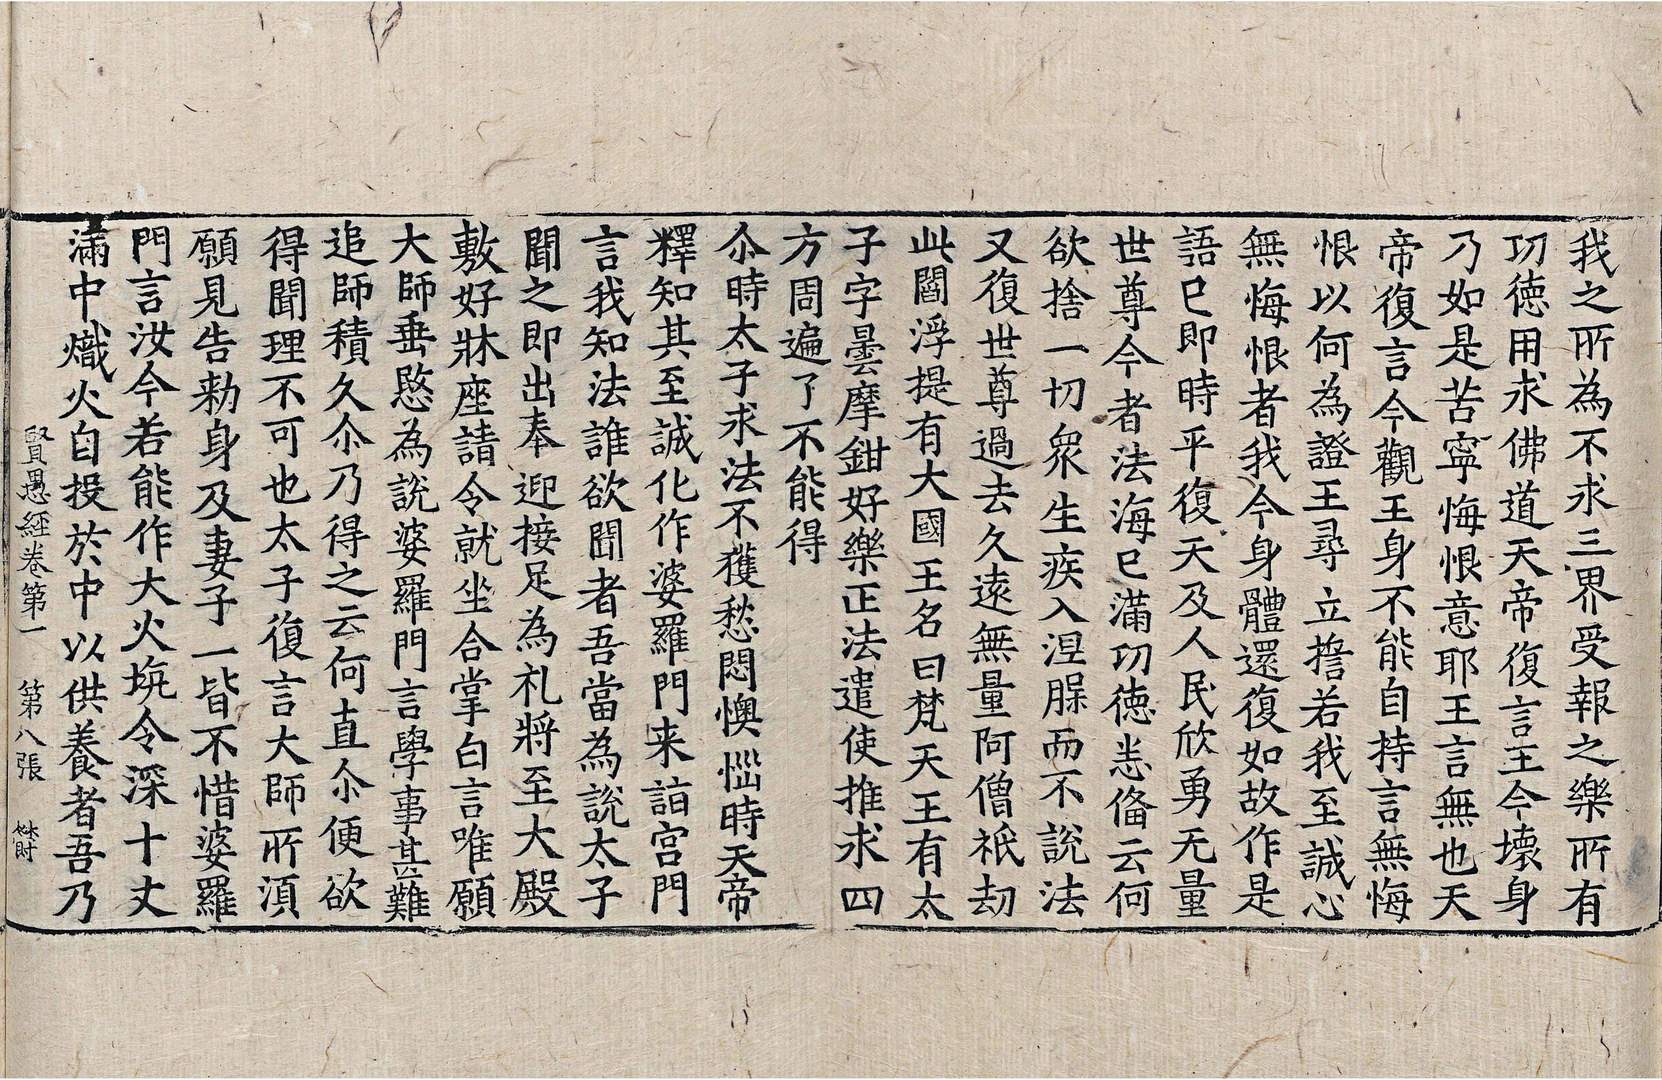 我之所為不求三界受報之樂所有
功徳用求佛道天帝復言王今壞身
乃如是苦寧悔恨意耶王言無也天
帝復言今觀王身不能自持言無悔
恨以何為證王尋立擔若我至誠心
無悔恨者我今身體還復如故作是
語已即時平復天及人民欣勇无量
世尊今者法海已滿功徳悉俻云何
欲捨一切衆生疾入涅脲而不說法
又復世尊過去久遠無量阿僧祇劫
此閻浮提有大國王名曰梵天王有太
子字曇摩鉗好樂正法遣使推求四
方周遍了不能得
尒時太子求法不獲愁悶懊惱時天帝
釋知其至誠化作婆羅門来詣宫門
言我知法誰欲聞者吾當為說太子
聞之即出奉迎接足為礼將至大殿
敷好牀座請令就坐合掌白言唯願
大師垂愍為說婆羅門言學事甚難
追師積久尒乃得之云何直尒便欲
得聞理不可也太子復言大師所湏
願見告勑身及妻子一皆不惜婆羅
門言汝今若能作大火坑令深十丈
滿中熾火自投於中以供養者吾乃
賢愚經卷第一 第八張